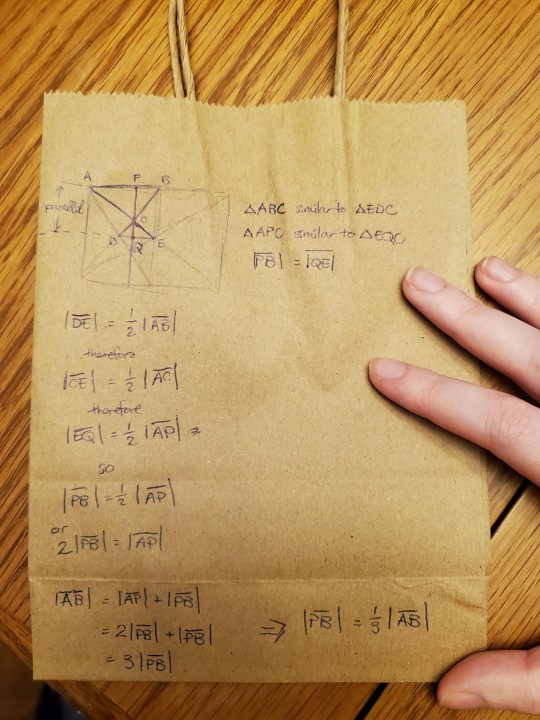 A P B
parallel
C
D Q E
△ABC similar to △EDC
△APC similar to △EQC
|PB| = |QE|
|DE| = 1/2 |AB|
therefore
|CE| = 1/2 |AC|
therefore
|EQ| = 1/2 |AP|
so
|PB| = 1/2 |AP|
or
2|PB| = |AP|
|AB| = |AP| + |PB|
= 2|PB| + |PB| ⇒ |PB| = 1/3 |AB|
= 3|PB|